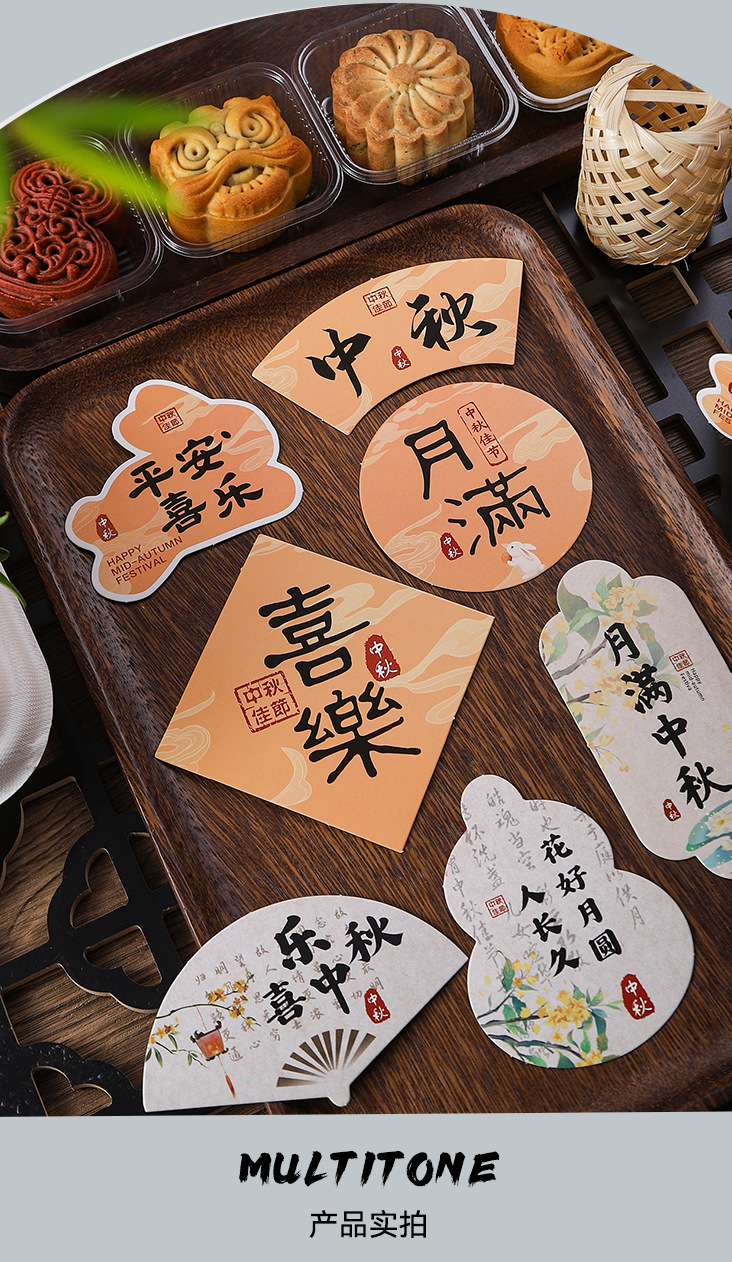 中秋
佳節
中秋
中秋
中秋
佳節
平安·
喜乐
中秋
HAPPY
MID-AUTUMN
FESTIVAL
中秋佳节
月
滿
中秋
喜
樂
中秋
中秋
佳節
月滿中秋
中秋
佳節
Happy
mid-autumn
中秋
花好月圆
人长久
中秋
佳節
中秋
乐
喜中秋
中秋
MULTITONE
产品实拍